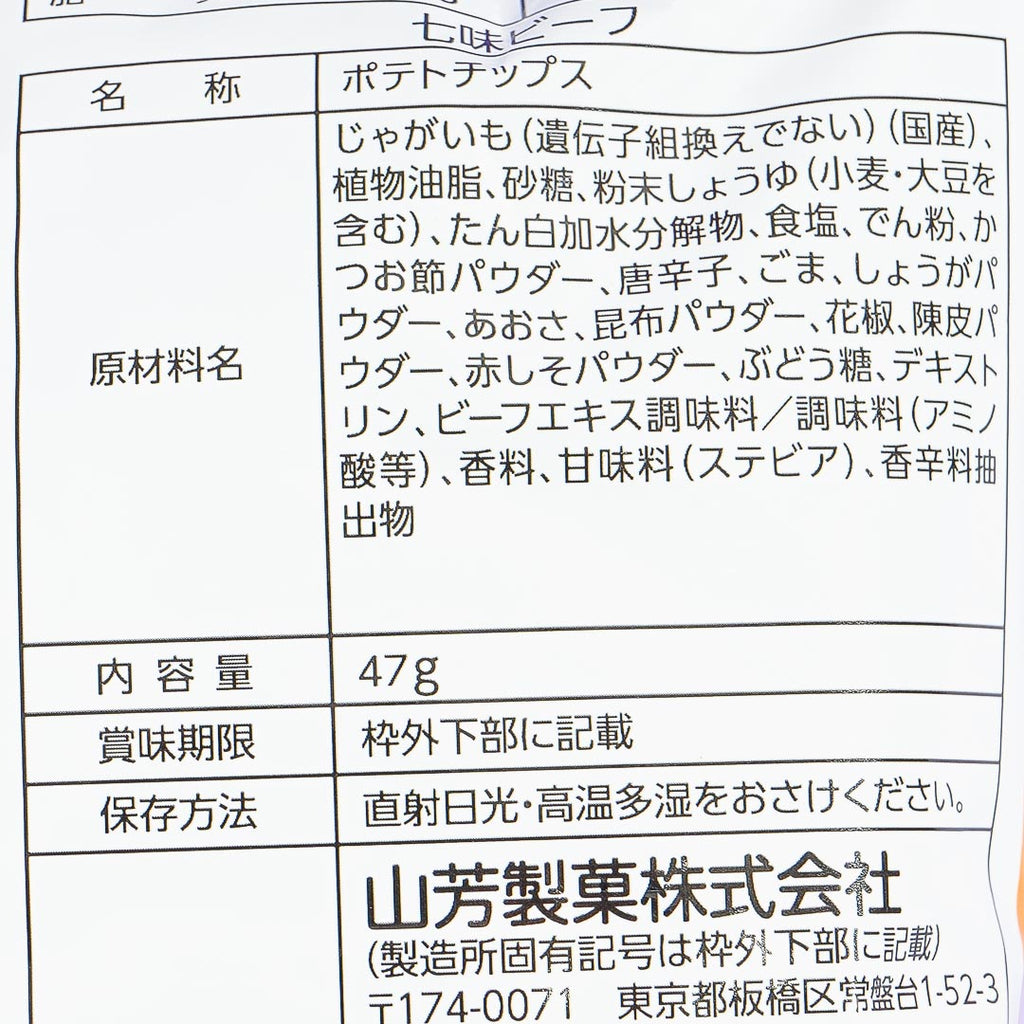 七味ビーフ
名 称 ポテトチップス
原材料名
じゃがいも(遺伝子組換えでない)(国産)、
植物油脂、砂糖、粉末しょうゆ(小麦・大豆を
含む)、たん白加水分解物、食塩、でん粉、か
つお節パウダー、唐辛子、ごま、しょうがパ
ウダー、あおさ、昆布パウダー、花椒、陳皮パ
ウダー、赤しそパウダー、ぶどう糖、デキスト
リン、ビーフエキス調味料／調味料(アミノ
酸等)、香料、甘味料(ステビア)、香辛料抽
出物
内容量 47g
賞味期限 枠外下部に記載
保存方法 直射日光・高温多湿をおさけください。
山芳製菓株式会社
(製造所固有記号は枠外下部に記載)
〒174-0071 東京都板橋区常盤台1-52-3